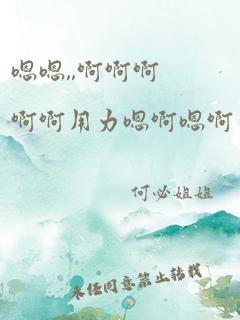 嗯嗯,,啊啊啊
啊啊用力嗯啊嗯啊
何必姐姐
未经同意禁止转载